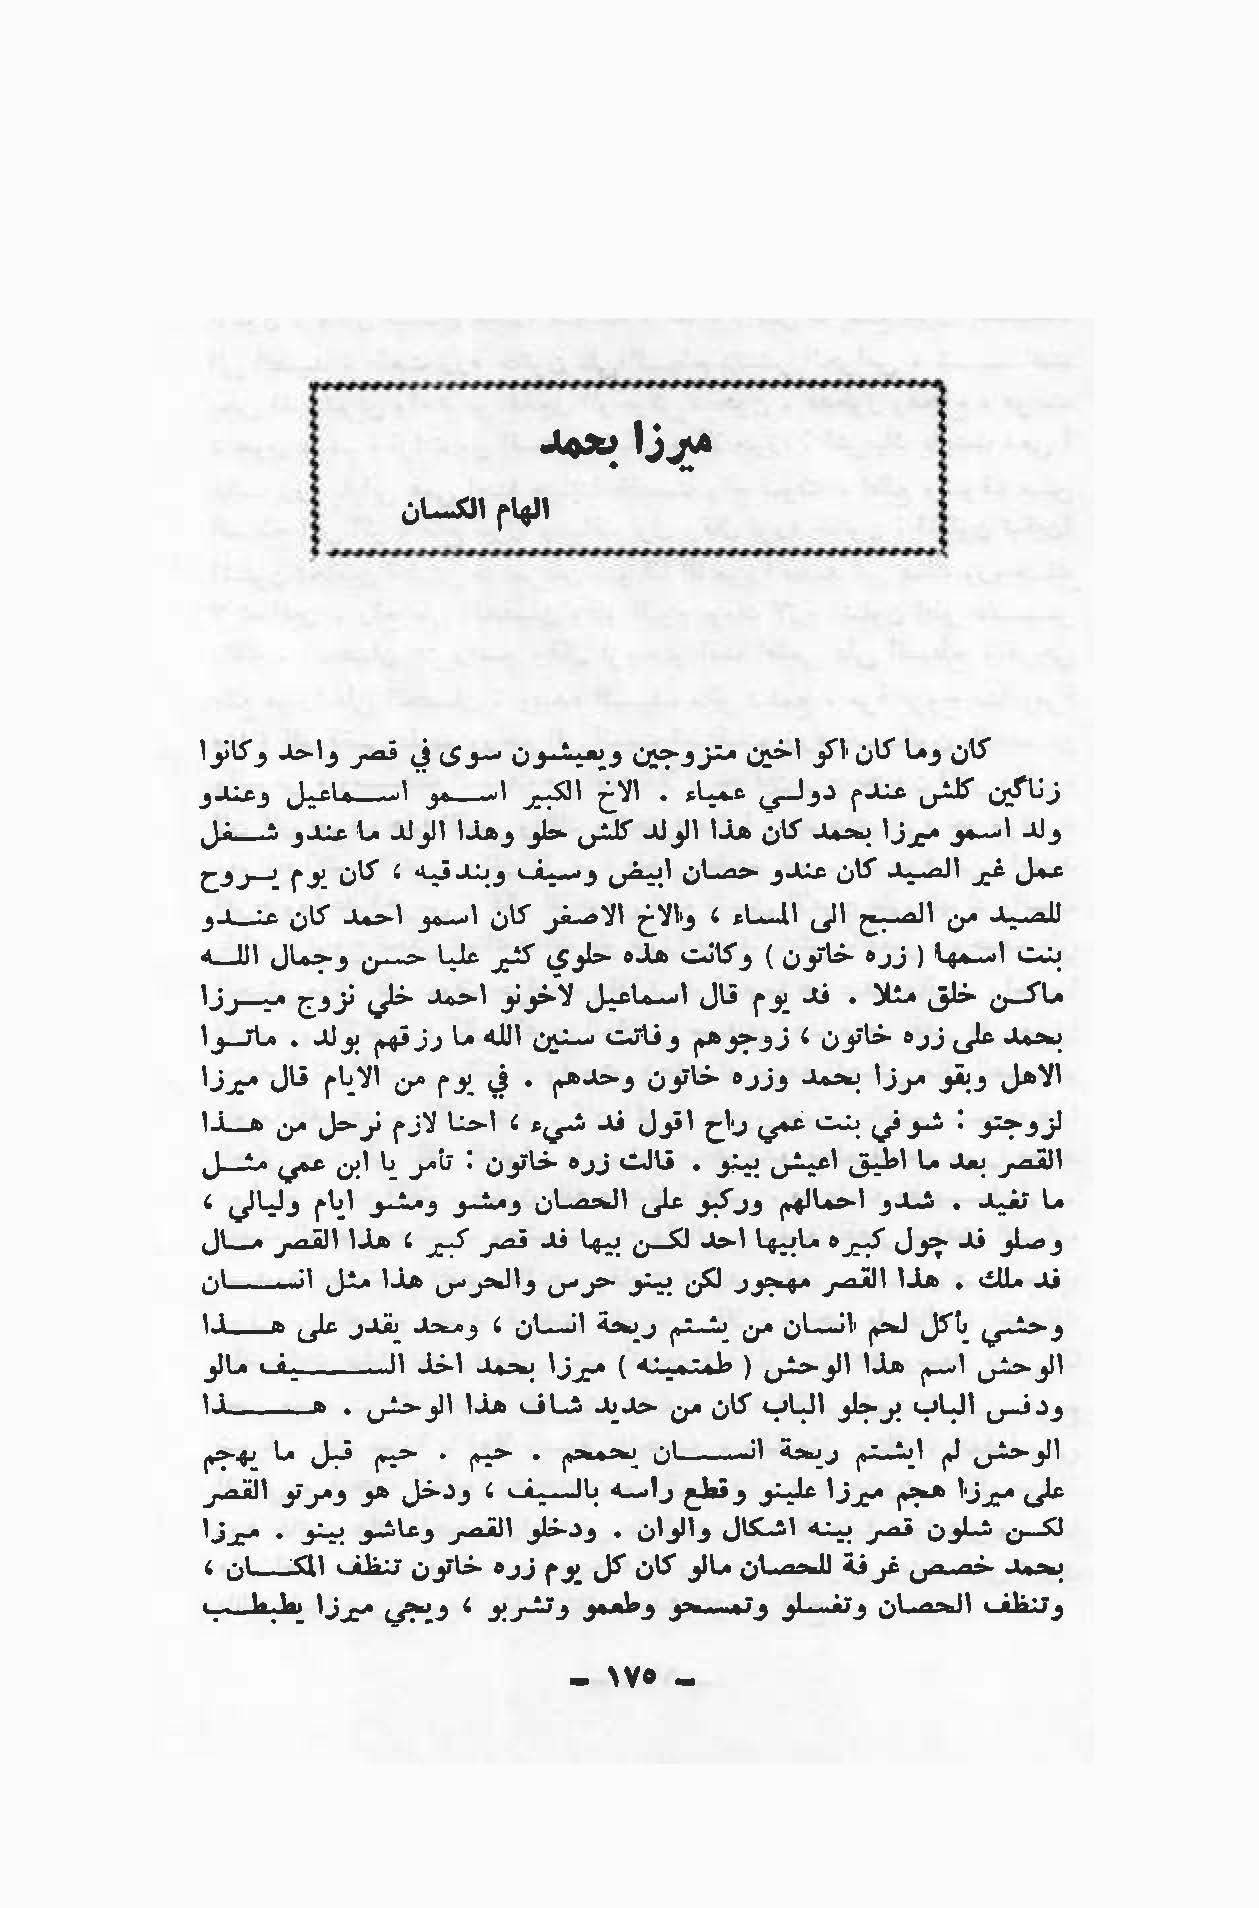 ميرزا بحمد
الهام الكسان
كان وما كان اكو اخين متزوجين ويعيشون سوى في قصر واحد وكانوا
زناگين كلش عندم دولي عمياء . الاخ الكبير اسمو اسماعيل وعندو
ولد اسمو ميرزا بحمد كان هذا الولد كلش حلو وهذا الولد ما عندو شغل
عمل غير الصيد كان عندو حصان ابيض وسيف وبندقيه ، كان يوم يروح
للصيد من الصبح الى المساء ، والاخ الاصغر كان اسمو احمد كان عندو
بنت اسمها ( زره خاتون ) وكانت هذه حلوي كثير عليا حسن وجمال الله
ماكن خلق مثلا . فد يوم قال اسماعيل لاخونو احمد خلي نزوج ميرزا
بحمد على زره خاتون ، زوجوهم وفاتت سنين الله ما رزقهم بولد . ماتوا
الاهل وبقو مرزا بحمد وزره خاتون وحدهم . في يوم من الايام قال ميرزا
لزوجتو : شوفي بنت عمي راح اقول فد شيء ، احنا لازم نرحل من هذا
القصر بعد ما اطيق اعيش بينو . قالت زره خاتون : تأمر يا ابن عمي مثل
ما تفيد . شدو احمالهم وركبو على الحصان ومشو ومشو ايام وليالي ،
وصلو فد چول كبيره مابيها احد لكن بيها فد قصر كبير ، هذا القصر مال
فد ملك . هذا القصر مهجور لكن بينو حرس والحرس هذا مثل انسان
وحشي يأكل لحم انسان من يشتم ريحة انسان ، ومحد يقدر على هذا
الوحش اسم هذا الوحش ( طمتمينه ) ميرزا بحمد اخذ السيف مالو
ودفس الباب برجلو الباب كان من حديد شاف هذا الوحش . هذا
الوحش لم ايشتم ريحة انسان يحمحم . حيم . حيم قبل ما يهجم
على ميرزا هجم ميرزا علينو وقطع راسه بالسيف ، ودخل هو ومرتو القصر
لكن شلون قصر بينه اشكال والوان . ودخلو القصر وعاشو بينو . ميرزا
بحمد خصص غرفة للحصان مالو كان كل يوم زره خاتون تنظف المكان ،
وتنظف الحصان وتغسلو وتمسحو وطعمو وتشربو ، ويجي ميرزا يطبطب
- ١٧٥ -